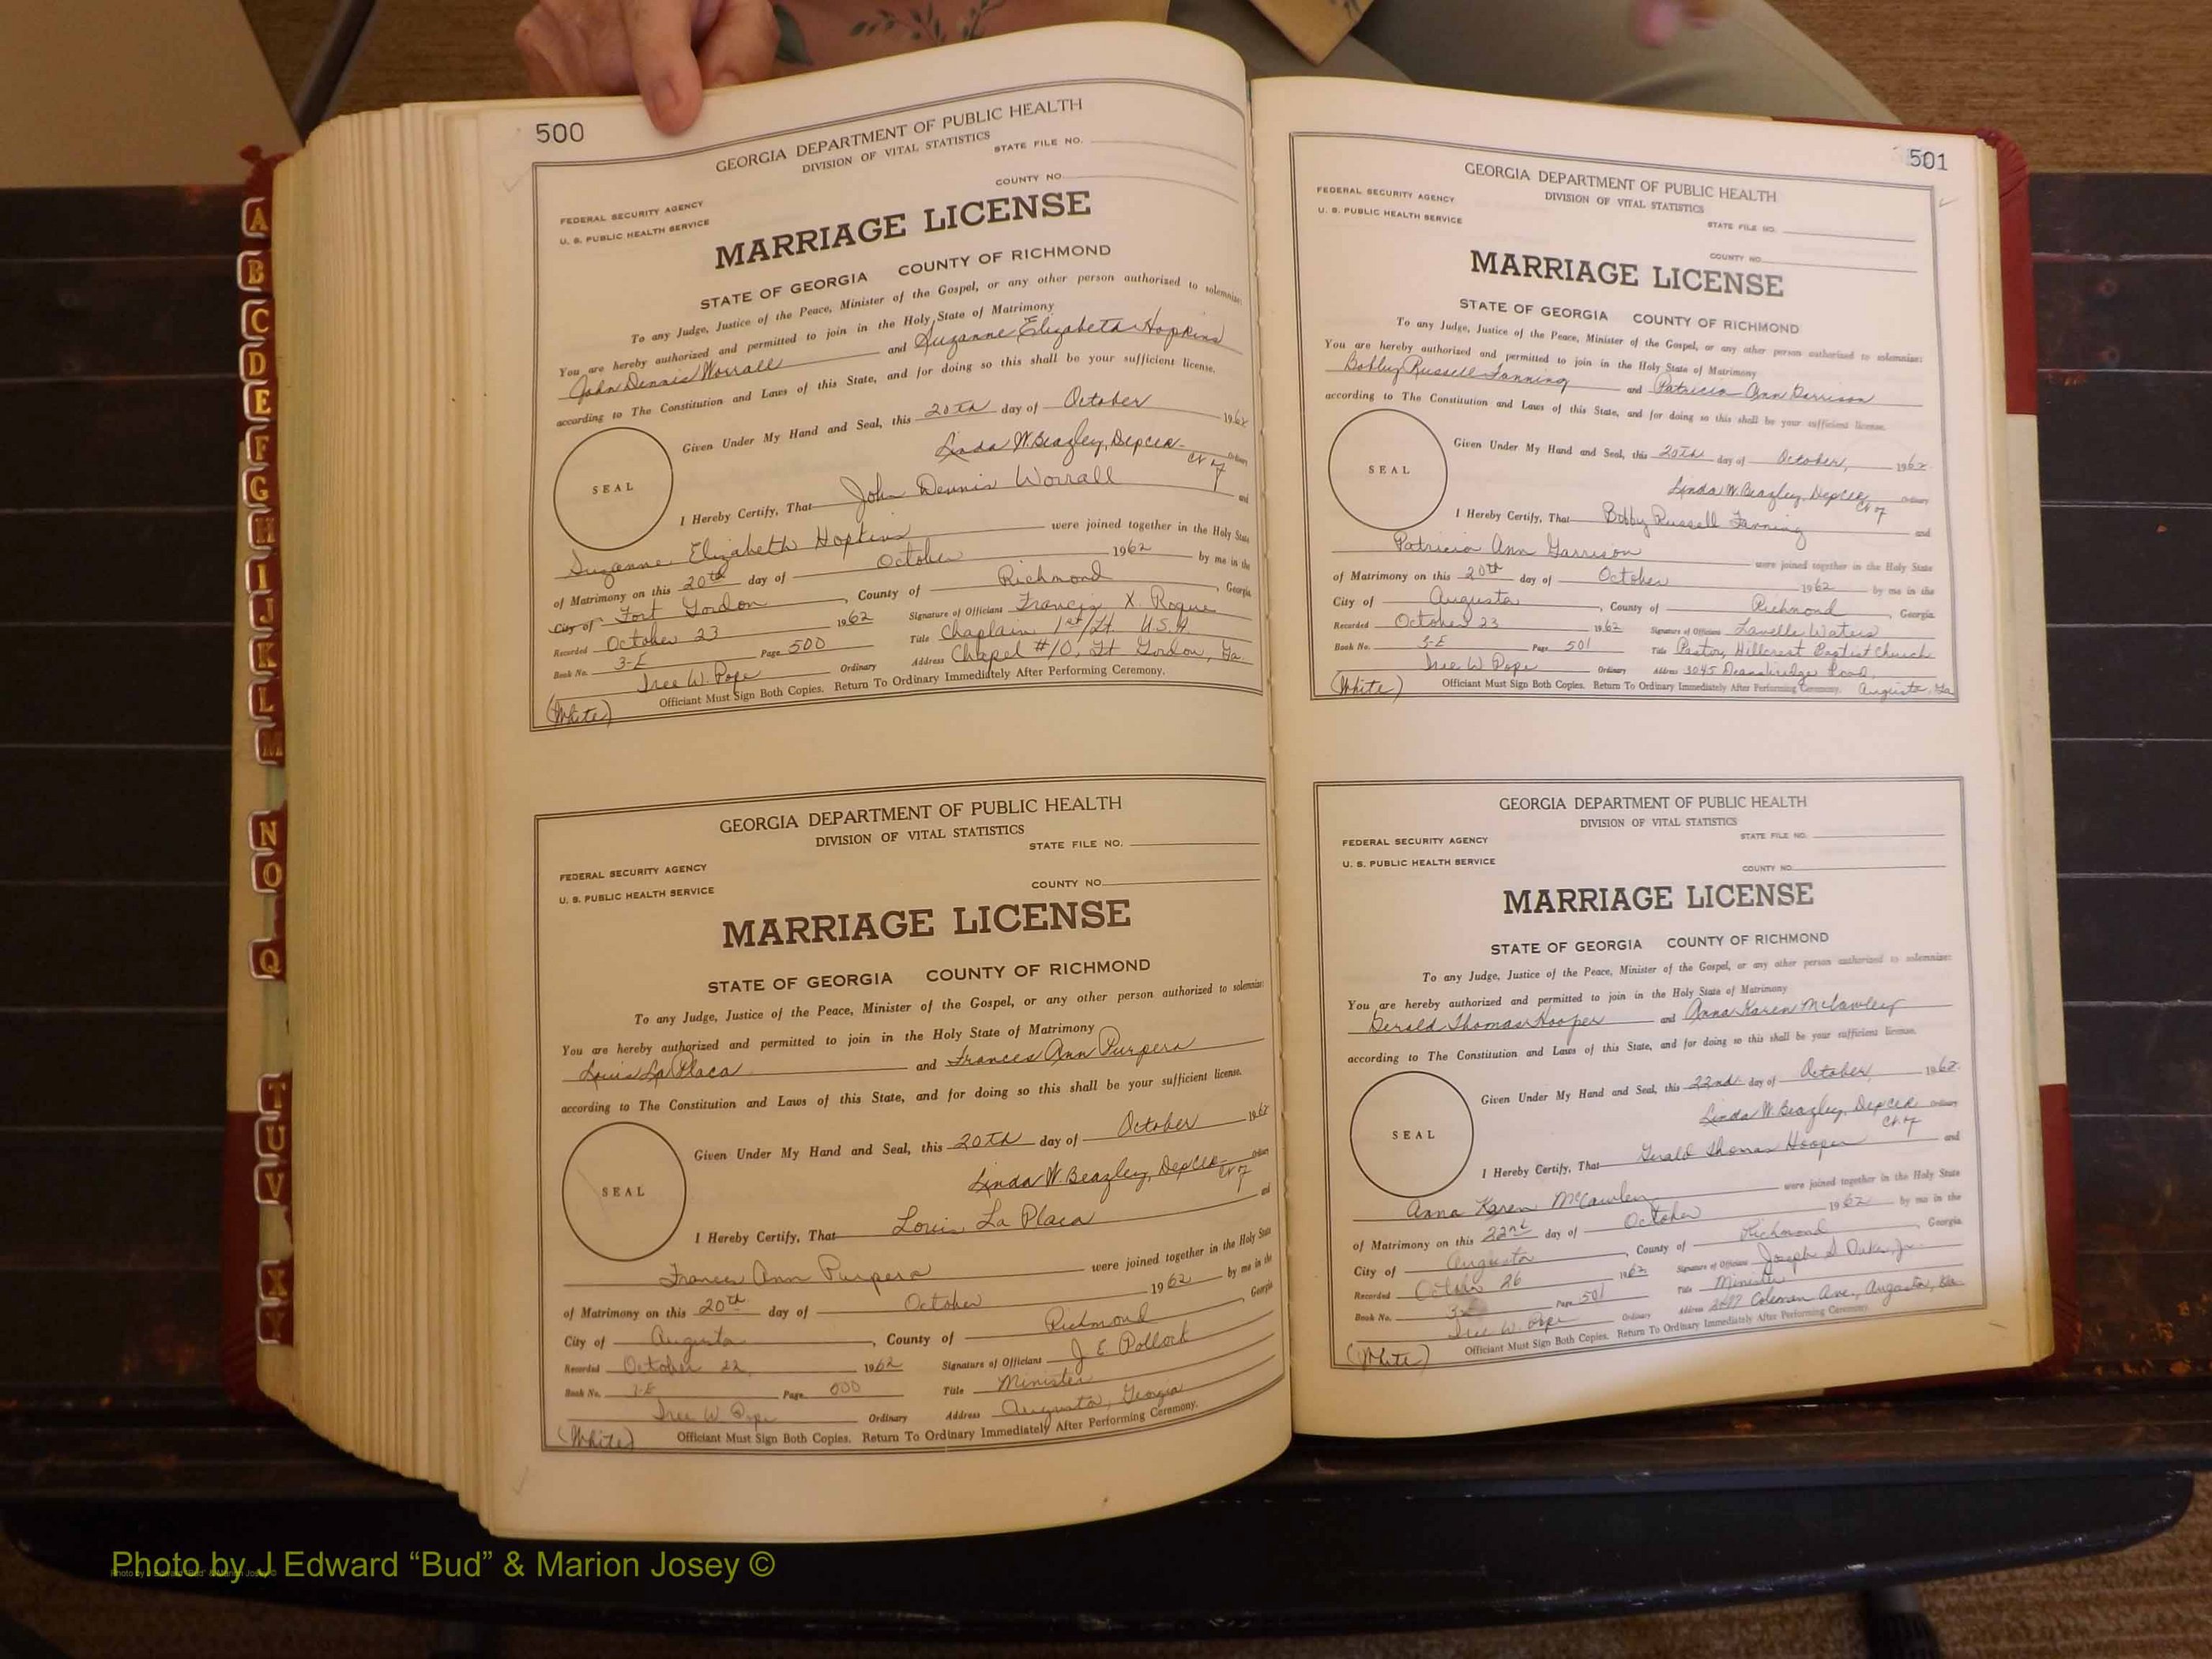 500
GEORGIA DEPARTMENT OF PUBLIC HEALTH
DIVISION OF VITAL STATISTICS
STATE FILE NO.
COUNTY NO.
FEDERAL SECURITY AGENCY
U. S. PUBLIC HEALTH SERVICE
MARRIAGE LICENSE
STATE OF GEORGIA COUNTY OF RICHMOND
To any Judge, Justice of the Peace, Minister of the Gospel, or any other person authorized to solemnize:
You are hereby authorized and permitted to join in the Holy State of Matrimony
John Dennis Worrall and Suzanne Elizabeth Hopkins
according to The Constitution and Laws of this State, and for doing so this shall be your sufficient license.
Given Under My Hand and Seal, this 20th day of October 1962
Linda W. Beazley, Dep Clk Ordinary
Ct of
SEAL
I Hereby Certify, That John Dennis Worrall and
Suzanne Elizabeth Hopkins were joined together in the Holy State
of Matrimony on this 20th day of October 1962 by me in the
City of Fort Gordon, County of Richmond, Georgia
Recorded October 23 1962 Signature of Officiant Francis X. Rogue
Book No. 3-E Page 500 Title Chaplain 1st/Lt. U.S.A.
Ordinary Address Chapel #10, Ft Gordon, Ga
Officiant Must Sign Both Copies. Return To Ordinary Immediately After Performing Ceremony.
(White)
GEORGIA DEPARTMENT OF PUBLIC HEALTH
DIVISION OF VITAL STATISTICS
STATE FILE NO.
FEDERAL SECURITY AGENCY
COUNTY NO.
U. S. PUBLIC HEALTH SERVICE
MARRIAGE LICENSE
STATE OF GEORGIA COUNTY OF RICHMOND
To any Judge, Justice of the Peace, Minister of the Gospel, or any other person authorized to solemnize:
You are hereby authorized and permitted to join in the Holy State of Matrimony
Louis La Placa and Frances Ann Purpera
according to The Constitution and Laws of this State, and for doing so this shall be your sufficient license.
Given Under My Hand and Seal, this 20th day of October 1962
Linda W. Beazley, Dep Clk Ordinary
Ct of
SEAL
I Hereby Certify, That Louis La Placa and
Frances Ann Purpera were joined together in the Holy State
of Matrimony on this 20th day of October 1962 by me in the
City of Augusta, County of Richmond, Georgia
Recorded October 22 1962 Signature of Officiant J E Pollock
Book No. 3-E Page 500 Title Minister
Ordinary Address Augusta, Georgia
Officiant Must Sign Both Copies. Return To Ordinary Immediately After Performing Ceremony.
(White)
501
GEORGIA DEPARTMENT OF PUBLIC HEALTH
DIVISION OF VITAL STATISTICS
FEDERAL SECURITY AGENCY
U. S. PUBLIC HEALTH SERVICE
STATE FILE NO.
COUNTY NO.
MARRIAGE LICENSE
STATE OF GEORGIA COUNTY OF RICHMOND
To any Judge, Justice of the Peace, Minister of the Gospel, or any other person authorized to solemnize:
You are hereby authorized and permitted to join in the Holy State of Matrimony
Bobby Russell Fanning and Patricia Ann Garrison
according to The Constitution and Laws of this State, and for doing so this shall be your sufficient license.
Given Under My Hand and Seal, this 20th day of October, 1962
Linda W. Beazley, Dep Clk Ordinary
Ct of
SEAL
I Hereby Certify, That Bobby Russell Fanning and
Patricia Ann Garrison were joined together in the Holy State
of Matrimony on this 20th day of October 1962 by me in the
City of Augusta, County of Richmond, Georgia
Recorded October 23 1962 Signature of Officiant Lavelle Waters
Book No. 3-E Page 501 Title Pastor, Hillcrest Baptist Church
Ordinary Address 3045 Deansbridge Road,
Augusta, Ga
Officiant Must Sign Both Copies. Return To Ordinary Immediately After Performing Ceremony.
(White)
GEORGIA DEPARTMENT OF PUBLIC HEALTH
DIVISION OF VITAL STATISTICS
STATE FILE NO.
FEDERAL SECURITY AGENCY
U. S. PUBLIC HEALTH SERVICE
COUNTY NO.
MARRIAGE LICENSE
STATE OF GEORGIA COUNTY OF RICHMOND
To any Judge, Justice of the Peace, Minister of the Gospel, or any other person authorized to solemnize:
You are hereby authorized and permitted to join in the Holy State of Matrimony
Gerald Thomas Hooper and Anna Karen McCawley
according to The Constitution and Laws of this State, and for doing so this shall be your sufficient license.
Given Under My Hand and Seal, this 22nd day of October, 1962
Linda W. Beazley, Dep Clk Ordinary
Ct of
SEAL
I Hereby Certify, That Gerald Thomas Hooper and
Anna Karen McCawley were joined together in the Holy State
of Matrimony on this 22nd day of October 1962 by me in the
City of Augusta, County of Richmond, Georgia
Recorded October 26 1962 Signature of Officiant Joseph S Duke, Jr.
Book No. Page 501 Title Minister
Ordinary Address Coleman Ave., Augusta, Ga.
Officiant Must Sign Both Copies. Return To Ordinary Immediately After Performing Ceremony.
(White)
A
B
C
D
E
F
G
H
I
J
K
L
M
N
O
Q
T
U
V
X
Y
Photo by J Edward “Bud” & Marion Josey ©
Photo by J Edward “Bud” & Marion Josey ©